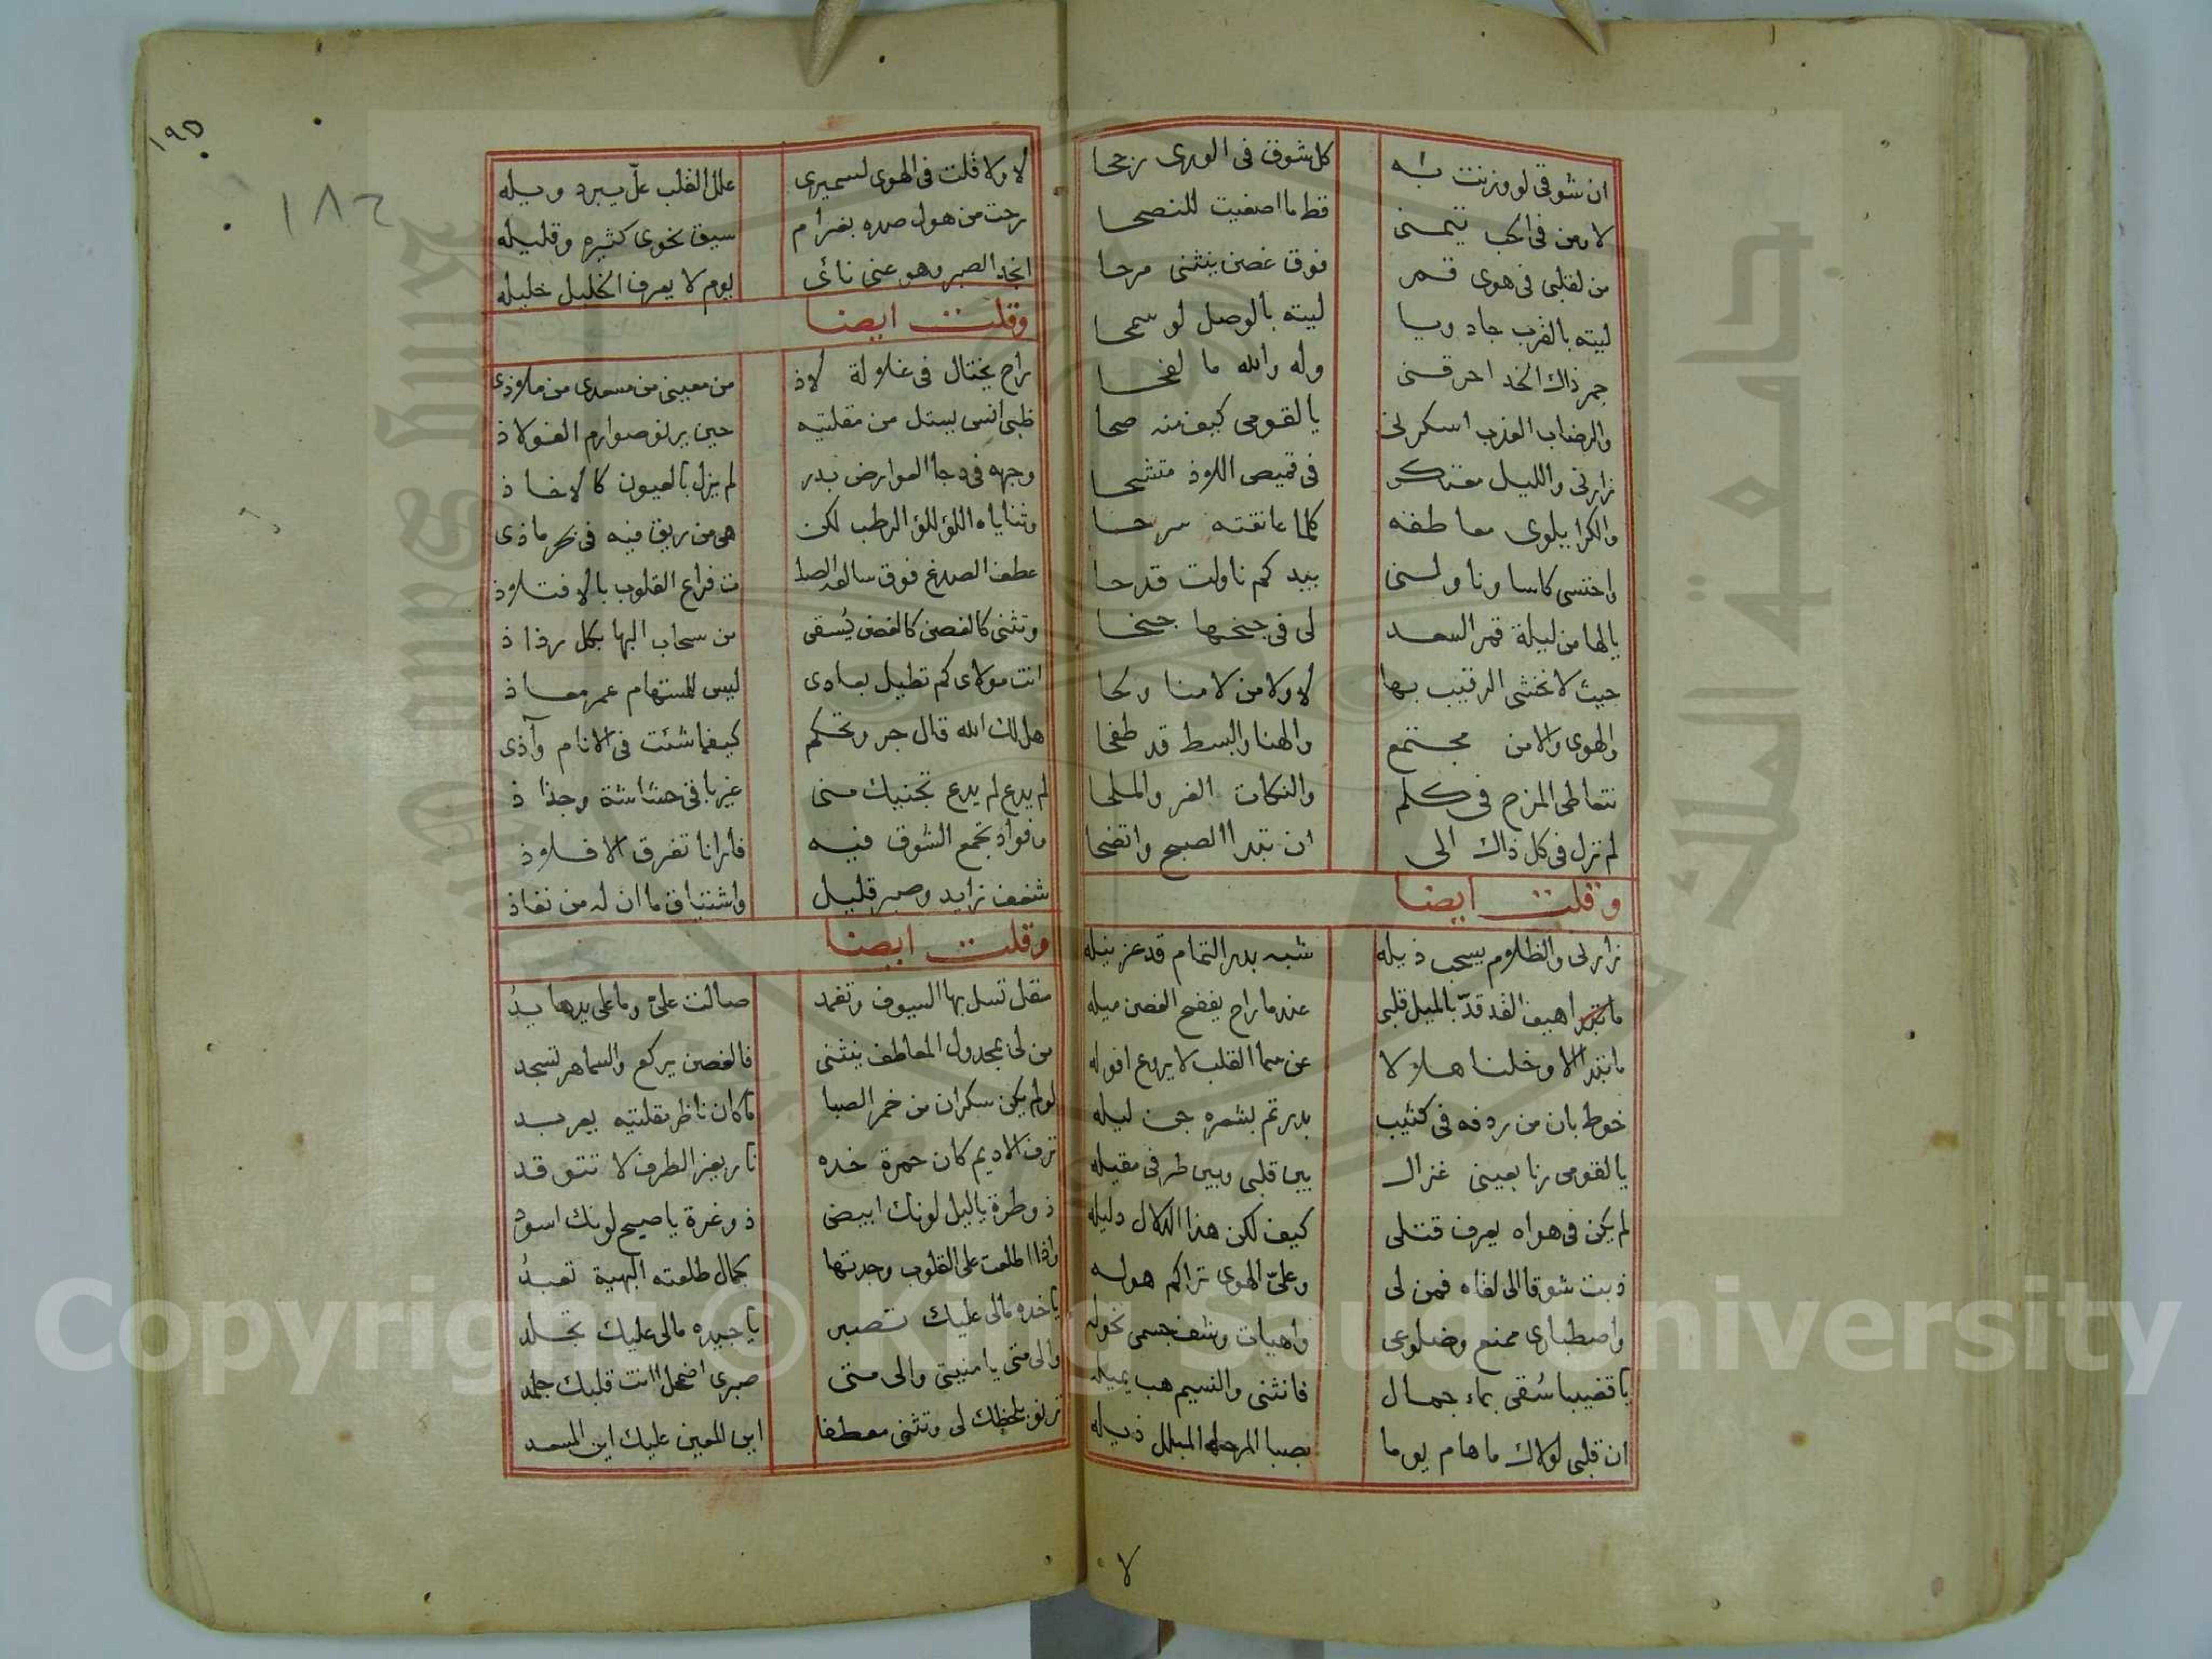 ان شوقى لو وزنت به كل شوق فى الورى رجحا
لامنى فى الحب يتمنى قط ما اصغيت للنصحا
من لقلبى فى هوى قمر فوق غصن ينثنى مرحا
ليته بالقرب جاد ويا ليته بالوصل لو سمحا
جمر ذاك الخد احرقنى وله والله ما لفحا
والرضاب العذب اسكرنى يا لقومى كيف منه صحا
زارنى والليل معتكر فى قميص اللاذ متشحا
والكرا يلوى معاطفه كلما عانقته سرحا
واحتسى كاسا وناولنى بيد كم ناولت قدحا
يالها من ليلة قمر السعد لى فى جنحها جنحا
حيث لا نخشى الرقيب بها لا ولا من لامنا ولحا
والهوى والامن مجتمع والهنا والبسط قد طفحا
نتعاطى المزح فى كلم والنكات الغر والملحا
لم نزل فى كل ذاك الى ان تبدا الصبح واتضحا
وقلت ايضا
زارنى والظلام يسحب ذيله شبه بدر التمام قد عز نيله
اهيف القد قدّ بالميل قلبى عندما راح يفضح الغصن ميله
ما تبدا الا وخلنا هلالا عن سما القلب لا يروع افوله
خوط بان من ردفه فى كثيب بدر تم بشعره جن ليله
يا لقومى رنا بعينى غزال بين قلبى وبين طرفى مقيله
لم يكن فى هواه يعرف قتلى كيف لكن هذا الدلال دليله
ذبت شوقا الى لقاه فمن لى وعلىّ الهوى تراكم هوله
واصطبارى ممنع وضلوعى واهيات وشف جسمى نحوله
يا قضيبا سُقى بماء جمال فانثنى والنسيم هب يميله
ان قلبى لولاك ما هام يوما بصبا المرحله المبلل ذيله
١٩٥
١٨٢
لا ولا قلت فى الهوى لسميرى علل القلب علّ يبرد ويله
رحت من هول صده بغرام سيق نحوى كثيره وقليله
انجد الصبر وهو عنى نائى يوم لا يعرف الخليل خليله
وقلت ايضا
راح يختال فى غلالة لاذ من معينى من مسعدى من ملاذى
ظبى انس يستل من مقلتيه حين يرنو صوارم الفولاذ
وجهه فى دجا العوارض بدر لم يزل بالعيون كالاخاذ
وثناياه اللؤللؤ الرطب لكن هى من ريق فيه فى ماذى
عطف الصدغ فوق سالفه الصلـ ت فراع القلوب بالافتلاذ
وتثنى كالغصن كالغصن يُسقى من سحاب البها بكل رذاذ
انت مولاى كم تطيل بعادى ليس للمستهام عمر معاذ
هل لك الله قال جر وتحكم كيفما شئت فى الانام وآذى
لم يدع لم يدع تجنيك منى غير باقى حشاشة وجذاذ
وفواد تجمع الشوق فيه فارانا تفرق الافلاذ
شغف زايد وصبر قليل واشتياق ما ان له من نفاذ
وقلت ايضا
مقل تسل بها السيوف وتغمد صالت علىّ وما على يدها يدُ
من لى بمجدول المعاطف ينثنى فالغصن يركع والسماهر تسجد
لو لم يكن سكران من خمر الصبا ما كان ناظر مقلتيه يعربد
ترف الاديم كان حمرة خده نار بغير الطرف لا تتوقد
ذو طرة ياليل لونك ابيض ذو غرة يا صبح لونك اسود
واذا اطلعت على القلوب وجدتها بجمال طلعته البهية تعبدُ
يا خده مالى عليك تصبر يا جيده مالى عليك تجلد
والى متى يا منيتى والى متى صبرى اضمحل اانت قلبك جلمد
ترنو بلحظك لى وتثنى معطفا اين المعين عليك اين المسعد
لا
Copyright © King Saud University